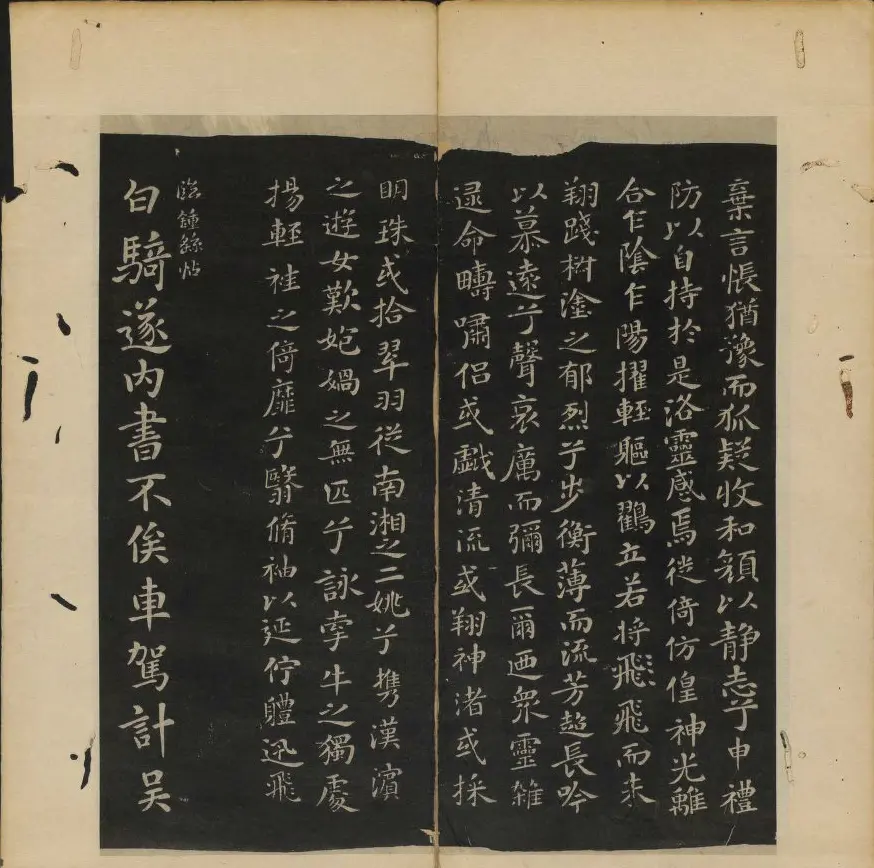 棄言悵猶豫而狐疑收和顏以静志兮申禮
防以自持於是洛靈感焉徙倚仿偟神光離
合乍陰乍陽擢輕軀以鸖立若将飛飛而未
翔踐椒塗之郁烈兮步衡薄而流芳超長吟
以慕遠兮聲哀厲而彌長爾迺衆靈雜
遝命疇嘯侣或戲清流或翔神渚或採
明珠或拾翠羽從南湘之二姚兮携漢濱
之遊女歎妑媧之無匹兮詠牽牛之獨處
揚輕袿之倚靡兮翳脩袖以延佇軆迅飛
臨鍾繇帖
白騎遂内書不俟車駕計吴